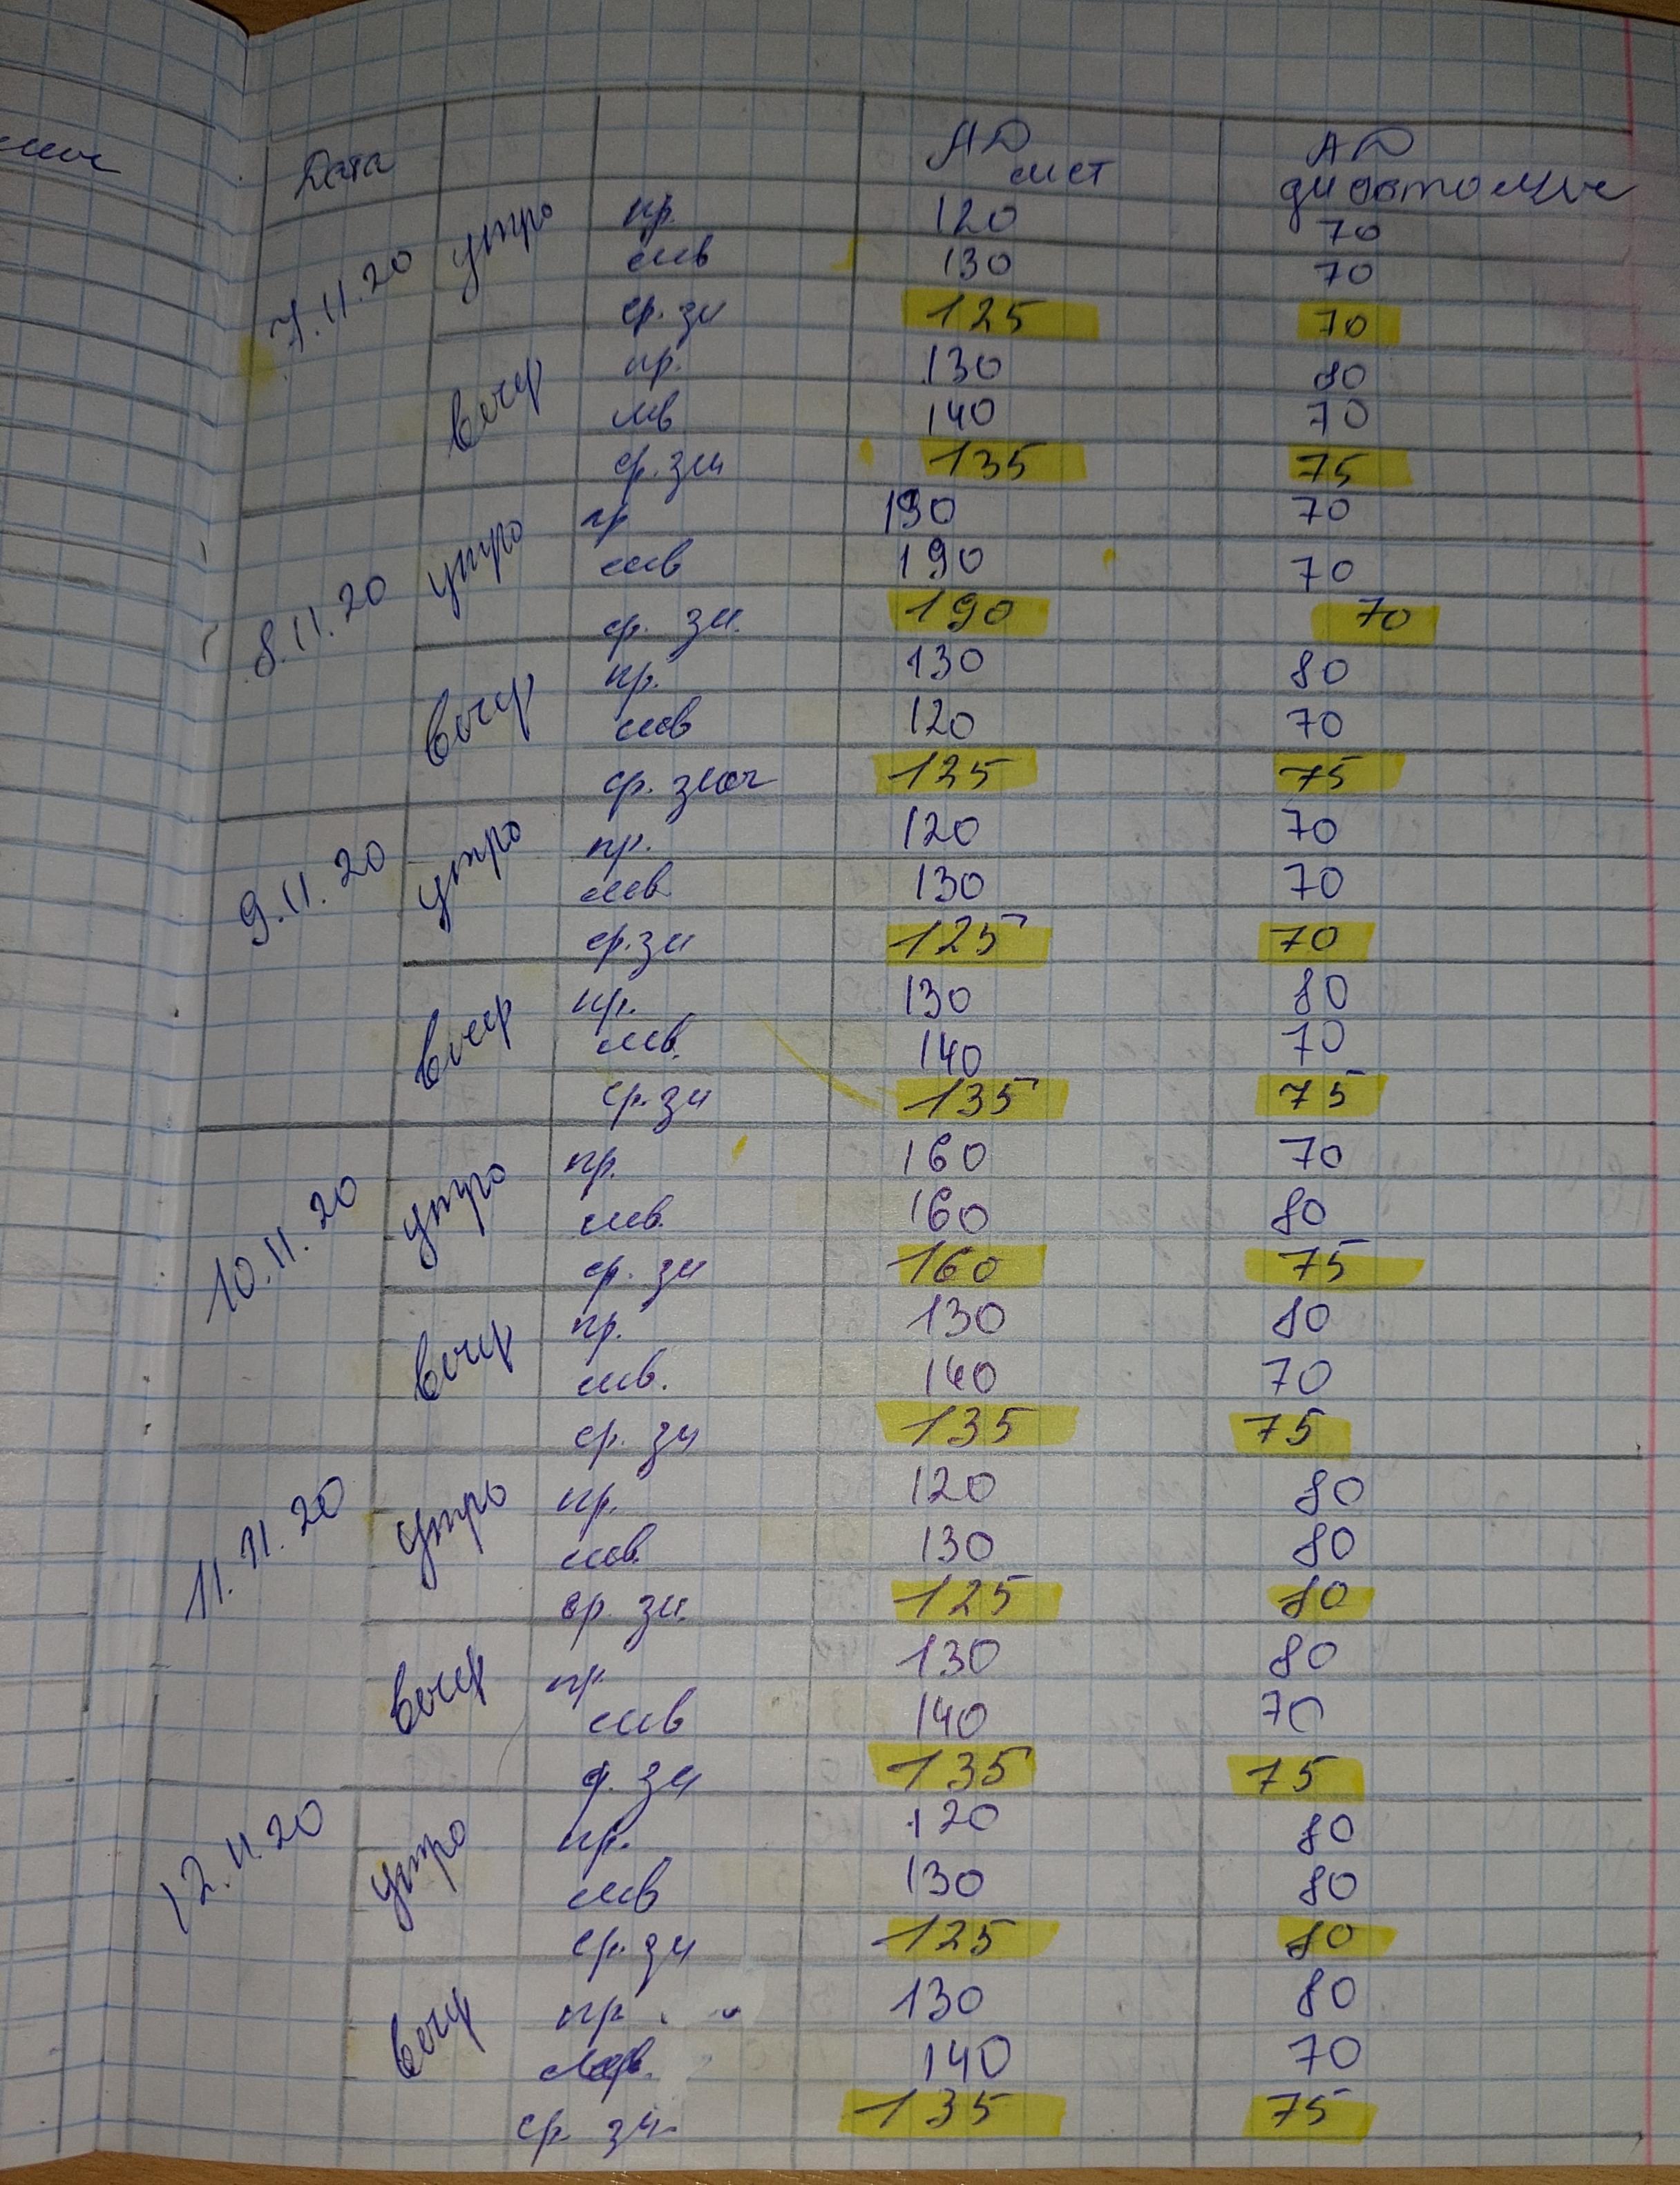 Дата АД сист АД диастолич
7.11.20 утро пр. 120 70
лев 130 70
ср. зн 125 70
вечер пр. 130 80
лев 140 70
ср. зн 135 75
8.11.20 утро пр 190 70
лев 190 70
ср. зн. 190 70
вечер пр. 130 80
лев 120 70
ср. знач 125 75
9.11.20 утро пр. 120 70
лев. 130 70
ср. зн 125 70
вечер пр. 130 80
лев. 140 70
ср. зн 135 75
10.11.20 утро пр. 160 70
лев. 160 80
ср. зн 160 75
вечер пр. 130 80
лев. 140 70
ср. зн 135 75
11.11.20 утро пр. 120 80
лев. 130 80
ср. зн. 125 80
вечер пр. 130 80
лев 140 70
ср. зн 135 75
12.11.20 утро пр. 120 80
лев 130 80
ср. зн 125 80
вечер пр. 130 80
лев. 140 70
ср зн. 135 75